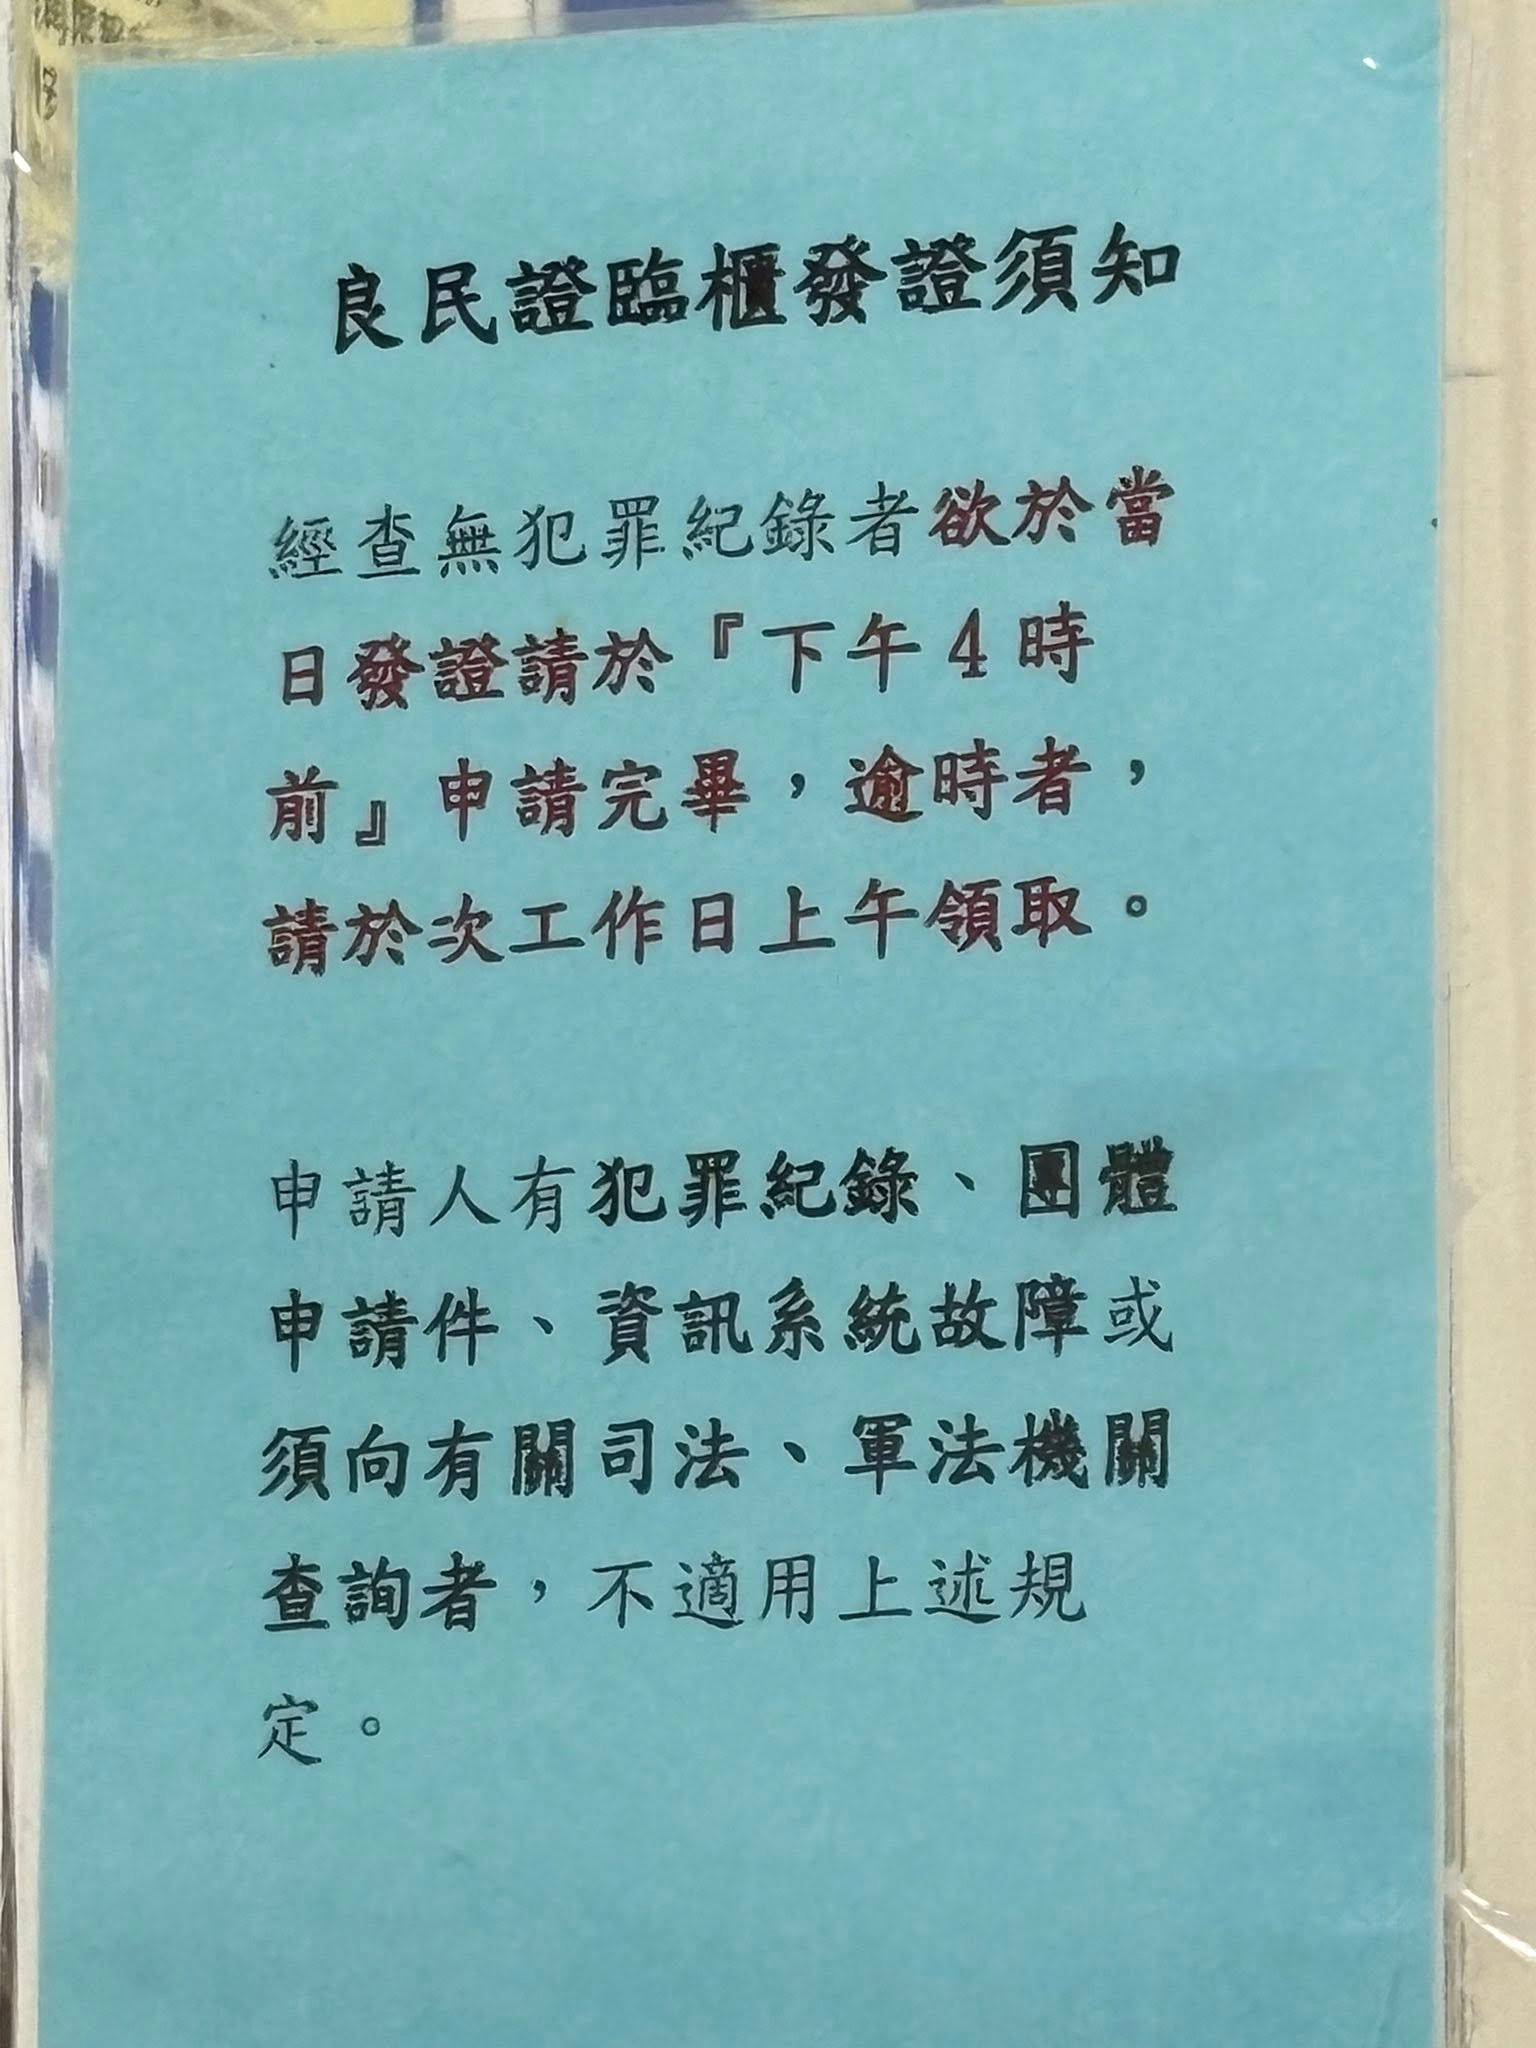 良民證臨櫃發證須知
經查無犯罪紀錄者欲於當
日發證請於『下午4時
前』申請完畢，逾時者，
請於次工作日上午領取。
申請人有犯罪紀錄、團體
申請件、資訊系統故障或
須向有關司法、軍法機關
查詢者，不適用上述規
定。